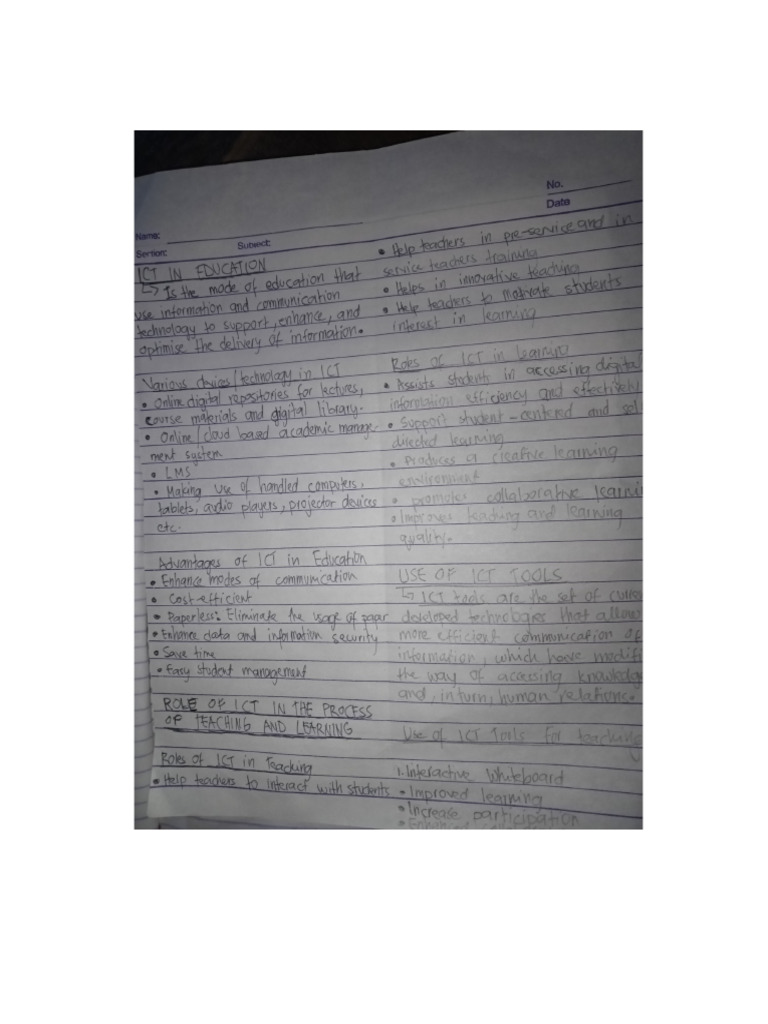 No.
Date
Name:
Section:
Subject:
ICT IN EDUCATION
↳ Is the mode of education that
use information and communication
technology to support, enhance, and
optimise the delivery of information.
Various devices/technology in ICT
• Online digital repositories for lectures,
course materials and gigital library.
• Online/cloud based academic manage-
ment system
• LMS
• Making use of handled computers,
tablets, audio players, projector devices
etc.
Advantages of ICT in Education
• Enhance modes of communication
• Cost efficient
• Paperless: Eliminate the usage of paper
• Enhance data and information security
• Save time
• Easy student management
ROLE OF ICT IN THE PROCESS
OF TEACHING AND LEARNING
Roles of ICT in Teaching
• Help teachers to interact with students
• Help teachers in pre-service and in
service teachers training
• Helps in innovative teaching
• Help teachers to motivate students
interest in learning
Roles of ICT in learning
• Assists students in accessing digital
information efficiency and effectively
• Support student-centered and sel
directed learning
• Produces a creative learning
environment
• promotes collaborative learnin
• Improves teaching and learning
quality.
USE OF ICT TOOLS
↳ ICT tools are the set of curre
developed technologies that allow
more efficient communication of
information, which have modifi
the way of accessing knowledge
and, in turn, human relations.
Use of ICT Tools for teaching
1. Interactive Whiteboard
• Improved learning
• Increase participation